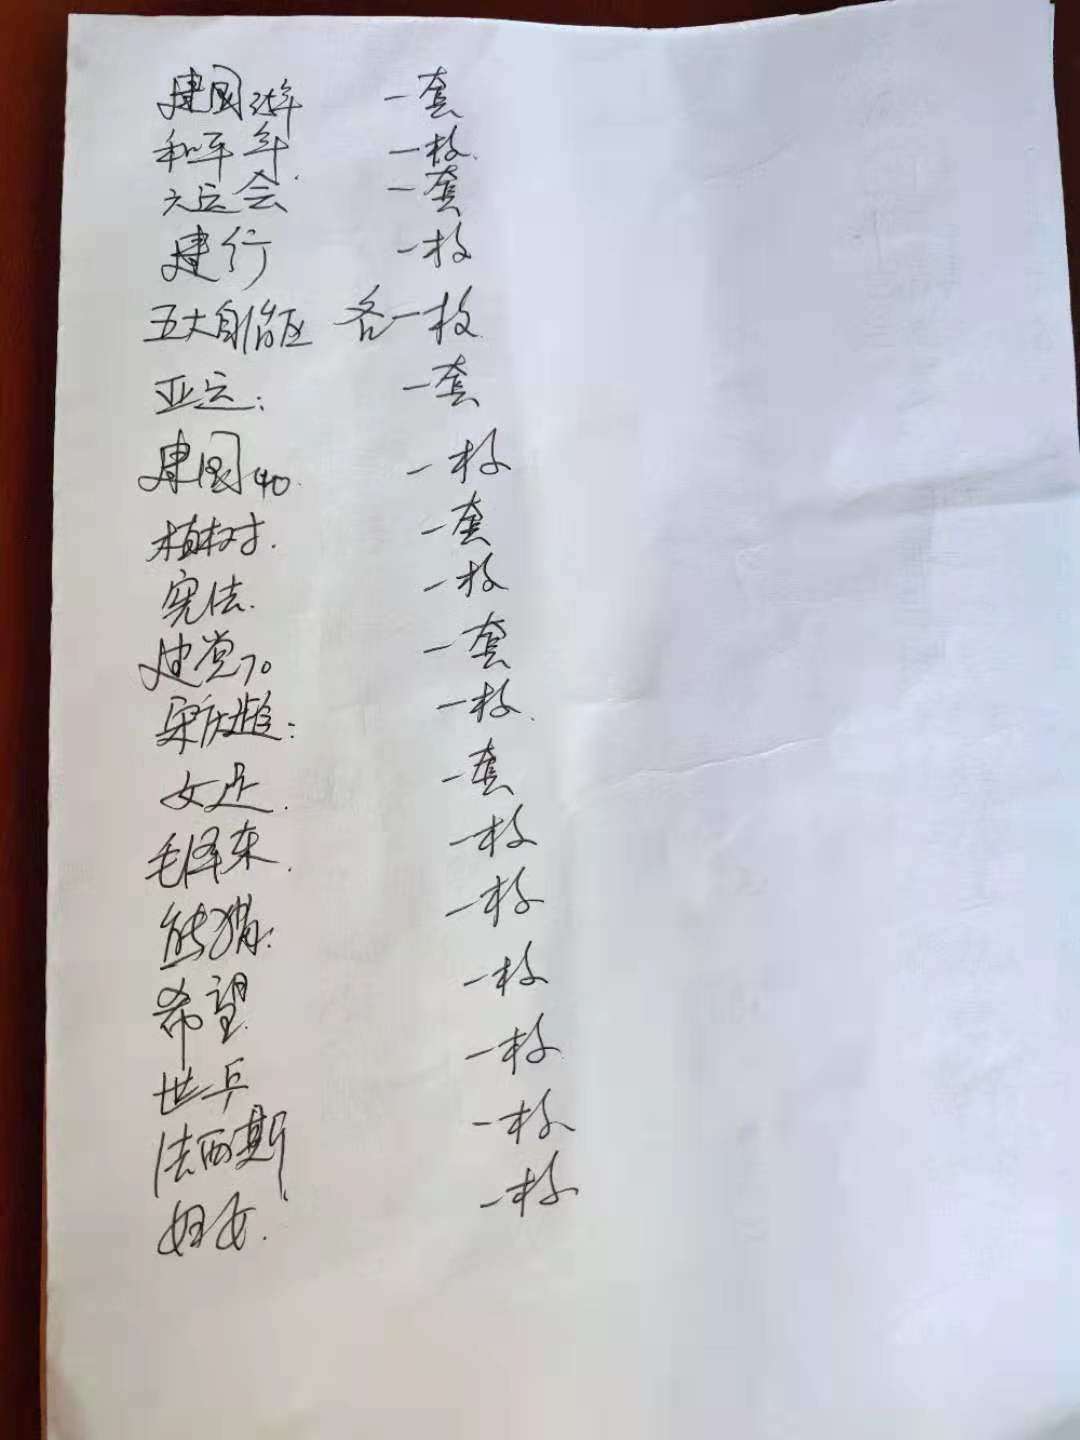 建国35年 一套
和平年. 一枚.
六运会 一套
建行 一枚
五大自治区 各一枚
亚运: 一套
建国40. 一枚
植树. 一套
宪法. 一枚
建党70 一套
宋庆龄: 一枚.
女足. 一套
毛泽东. 一枚
熊猫: 一枚
希望 一枚
世乒 一枚
法西斯 一枚
妇女. 一枚